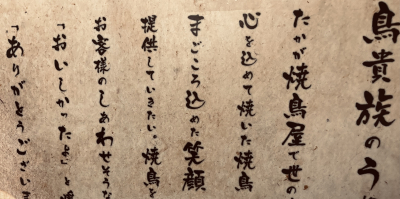 鳥貴族のう
たかが焼鳥屋で世の
心を込めて焼いた焼鳥
まごころ込めた笑顔
提供していきたい。焼鳥を
お客様のしあわせそうな
「おいしかったよ」と
「ありがとうございま